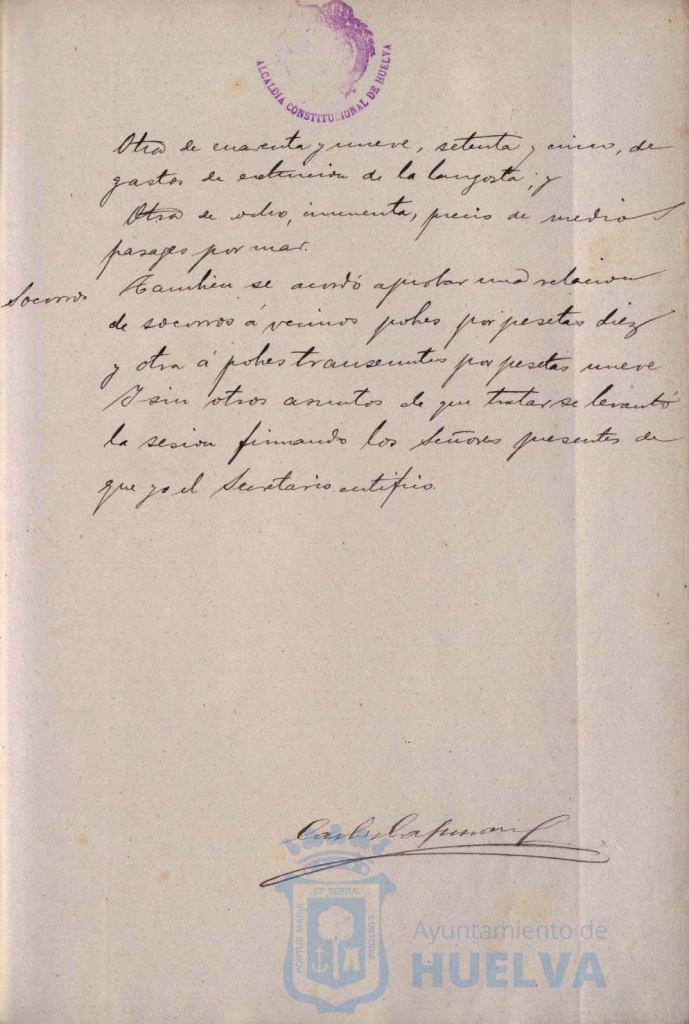 ALCALDIA CONSTITUCIONAL DE HUELVA
Otra de cuarenta y nueve, setenta y cinco, de
gastos de extincion de la langosta; y
Otra de ocho, cincuenta, precio de medios
pasages por mar.
Socorros
Tambien se acordó aprobar una relacion
de socorros á vecinos pobres por pesetas diez
y otra á pobres transeuntes por pesetas nueve
Y sin otros asuntos de que tratar se levantó
la sesion firmando los Señores presentes de
que yo el Secretario certifico.
PORTUS MARIS ET TERRÆ CUSTODIA
Ayuntamiento de
HUELVA